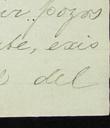 ir pozos
te, exis
del